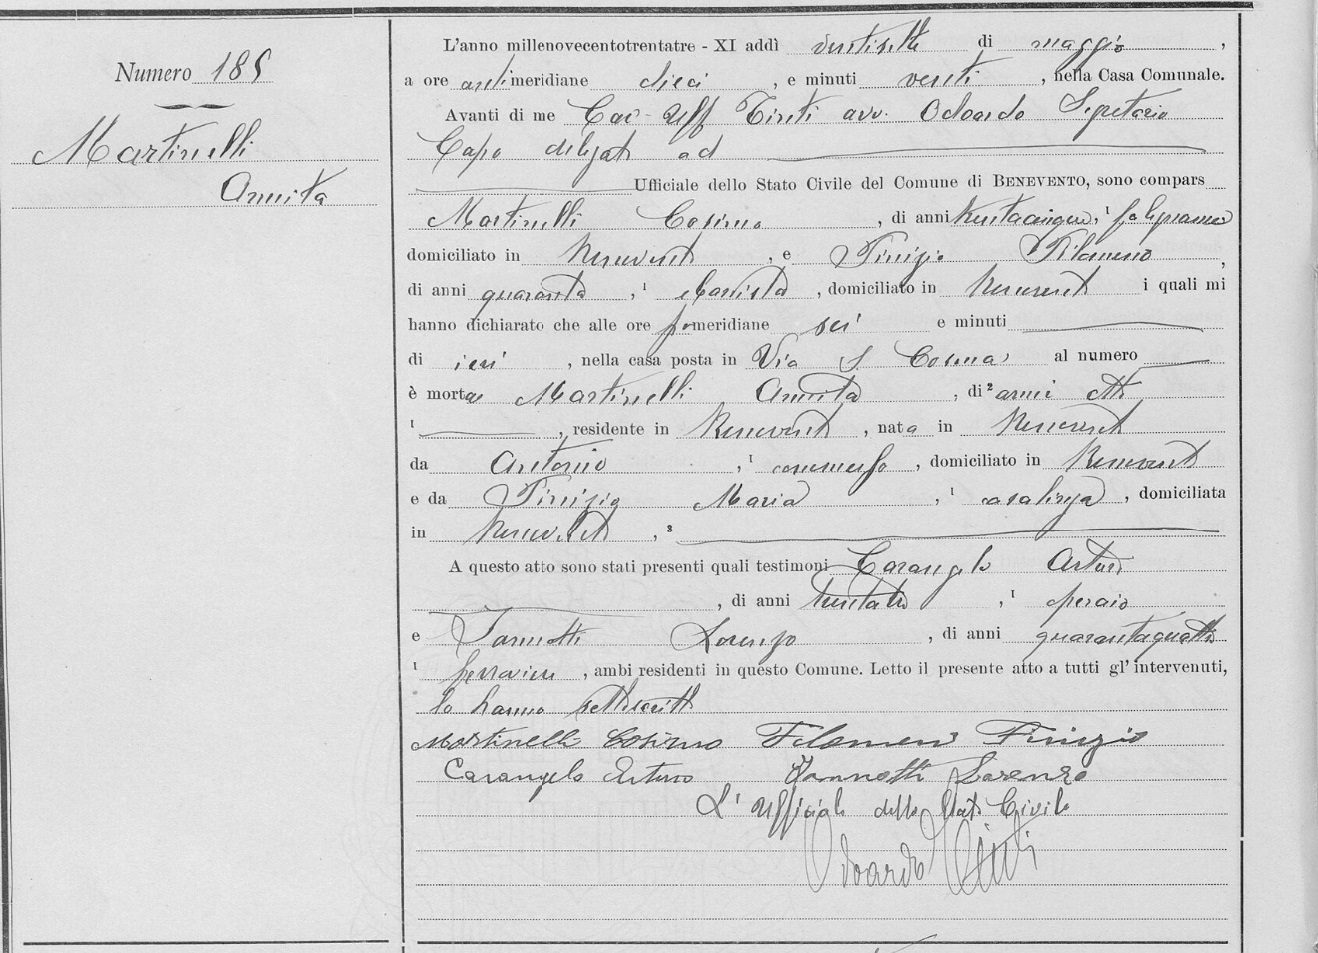 Numero 185
Martinelli
Annita
L'anno millenovecentotrentatre - XI addì ventisette di maggio,
a ore antimeridiane dieci, e minuti venti, nella Casa Comunale.
Avanti di me Cav. Uff. Tinti avv. Odoardo Segretario
Capo delegato ad
Ufficiale dello Stato Civile del Comune di BENEVENTO, sono compars
Martinelli Cosimo, di anni trentacinque, ¹ falegname
domiciliato in Benevento, e Finizio Filomeno,
di anni quaranta, ¹ ebanista, domiciliato in Benevento i quali mi
hanno dichiarato che alle ore pomeridiane sei e minuti
di ieri, nella casa posta in Via S. Cosma al numero
è morta Martinelli Annita, di ² anni otto
¹ , residente in Benevento, nata in Benevento
da Antonio, ¹ , domiciliato in Benevento
e da Finizio Maria, ¹ casalinga, domiciliata
in Benevento, ³
A questo atto sono stati presenti quali testimoni Carangelo Arturo
, di anni , ¹ operaio
e Iannotti Lorenzo, di anni quarantaquattro
¹ ferroviere, ambi residenti in questo Comune. Letto il presente atto a tutti gl' intervenuti,
lo hanno sottoscritto
Martinelli Cosimo Filomeno Finizio
Carangelo Arturo Iannotti Lorenzo
L' Ufficiale dello Stato Civile
Odoardo Tinti